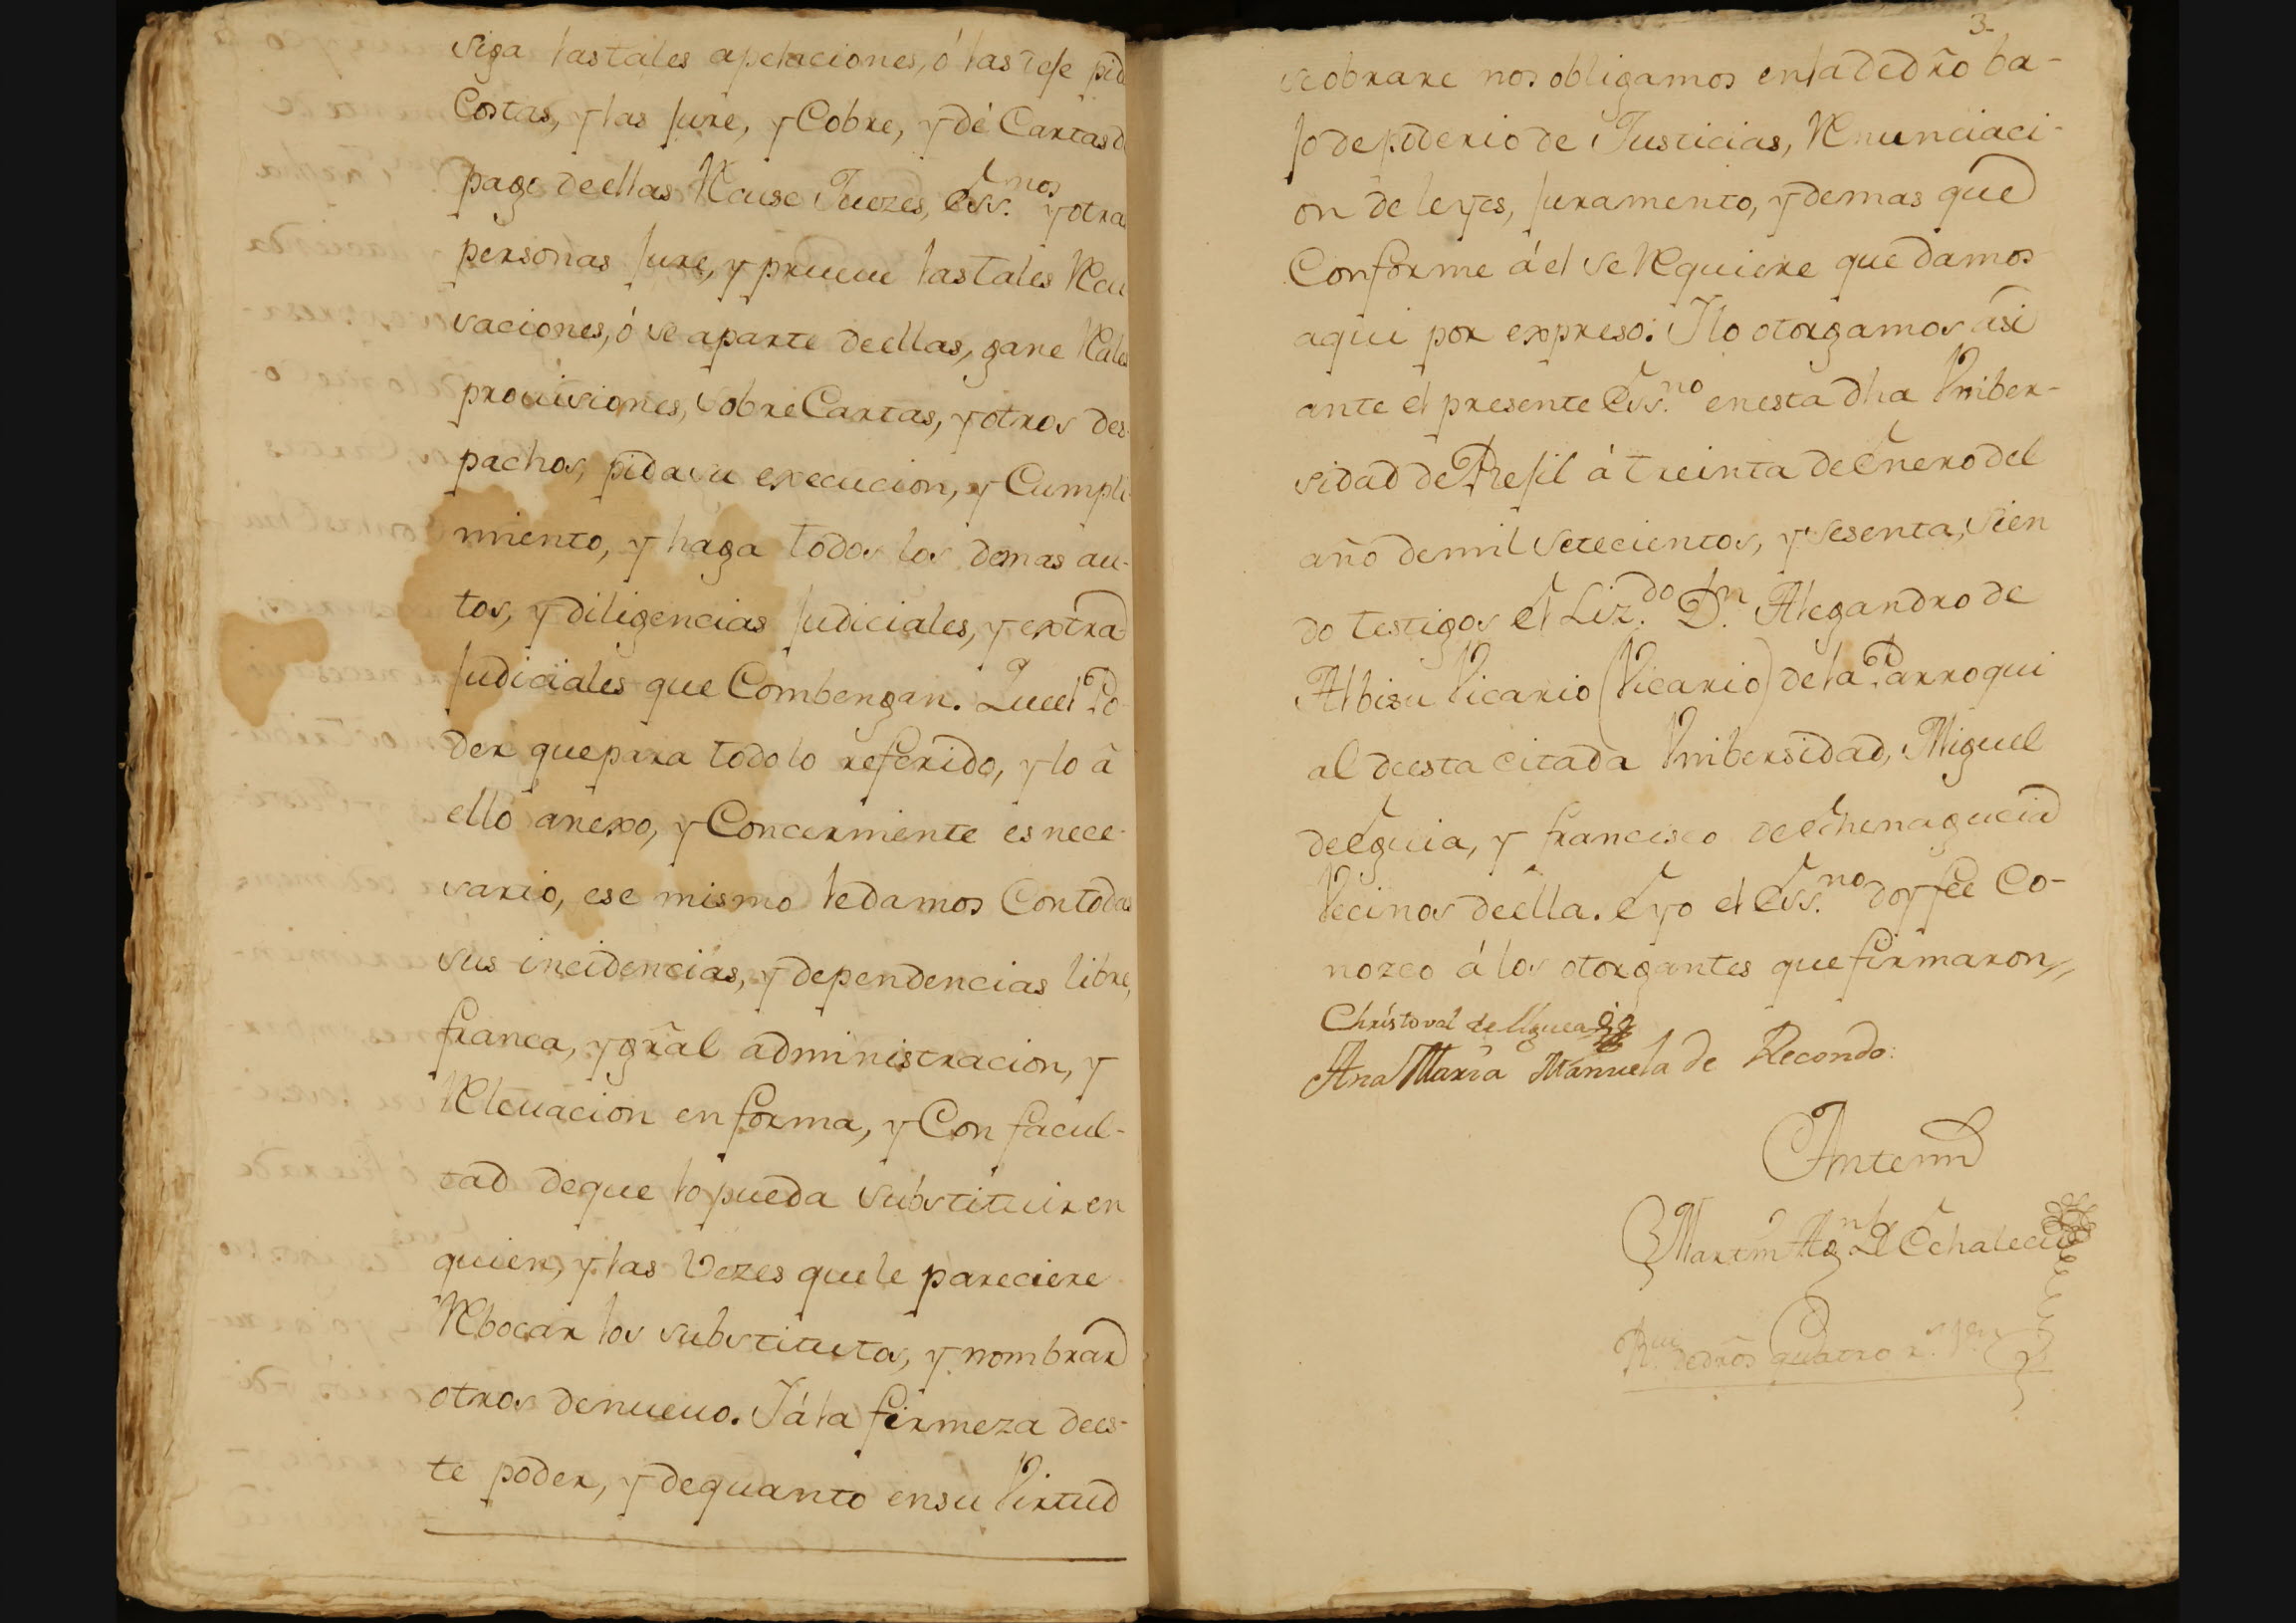 siga las tales apelaciones, ó las deje pid
Costas, y las jure, y Cobre, y dé Cartas d
pago de ellas Recuse Juezes, Ess.nos y otra
personas jure, y prueue las tales Recu
saciones, ó se aparte de ellas, gane Rales
prouisiones, sobre Cartas, y otros des-
pachos, pida su execucion, y Cumpli-
miento, y haga todos los demas au-
tos, y diligencias judiciales, y extra-
judiciales que Combengan. Que el Po-
der que para todo lo referido, y lo á
ello anexo, y Concerniente es nece-
sario, ese mismo le damos Con todas
sus incidencias, y dependencias libre,
franca, y gñal administracion, y
Releuacion en forma, y Con facul-
tad de que lo pueda substituir en
quien, y las Vezes que le pareciere
Rebocar los substitutos, y nombrar
otros de nueuo. I á la firmeza de es-
te poder, y de quanto en su Virtud
3
se obrare nos obligamos en la de dr̃o ba-
jo de poderio de Justicias, Renunciaci-
on de leyes, juramento, y demas que
Conforme á el se Requiere que damos
aqui por expreso. I lo otorgamos asi
ante el presente Ess.no en esta dha Vniber-
sidad de Rejil á treinta de Enero del
año de mil setecientos, y sesenta, sien
do testigos el Liz.do D.n Alegandro de
Albisu Vicario (Vicario) de la Parroqui
al de esta citada Vnibersidad, Miguel
de Eguia, y francisco de Echenagucia
Vecinos de ella. E yo el Ess.no doy fee Co-
nozco á los otorgantes que firmaron,,
Christoval de
Ana Maria Manuela de Recondo.
Antemi
Martin Ag.n de Echalecu
R.ui de dr̃os quatro r.s